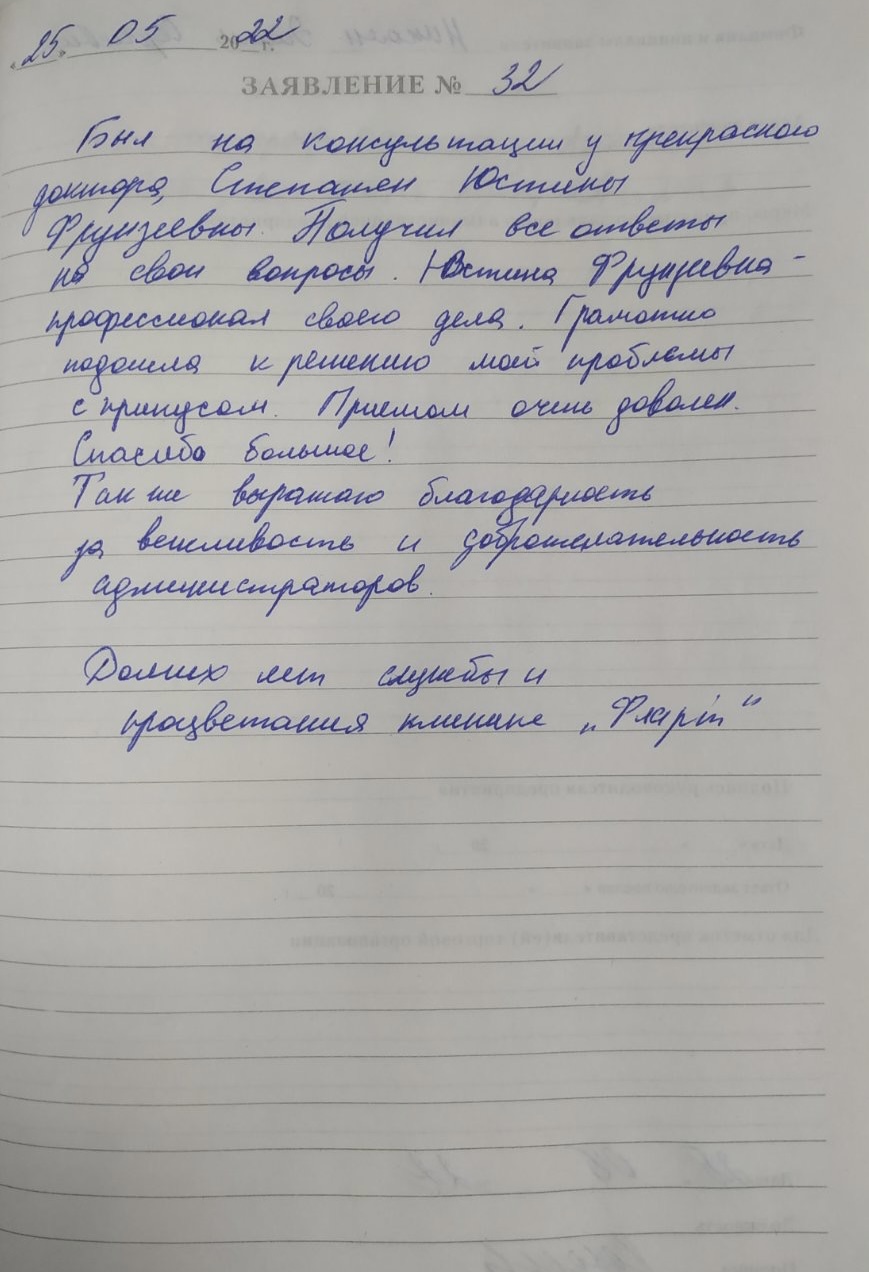 «25» 05 2022 г.
ЗАЯВЛЕНИЕ № 32
Был на консультации у прекрасного
доктора, Степанян Юстины
Фрунзеевны. Получил все ответы
на свои вопросы. Юстина Фрунзевна -
профессионал своего дела. Грамотно
подошла к решению моей проблемы
с прикусом. Приемом очень доволен.
Спасибо большое!
Так же выражаю благодарность
за вежливость и доброжелательность
администраторов.
Долгих лет службы и
процветания клинике